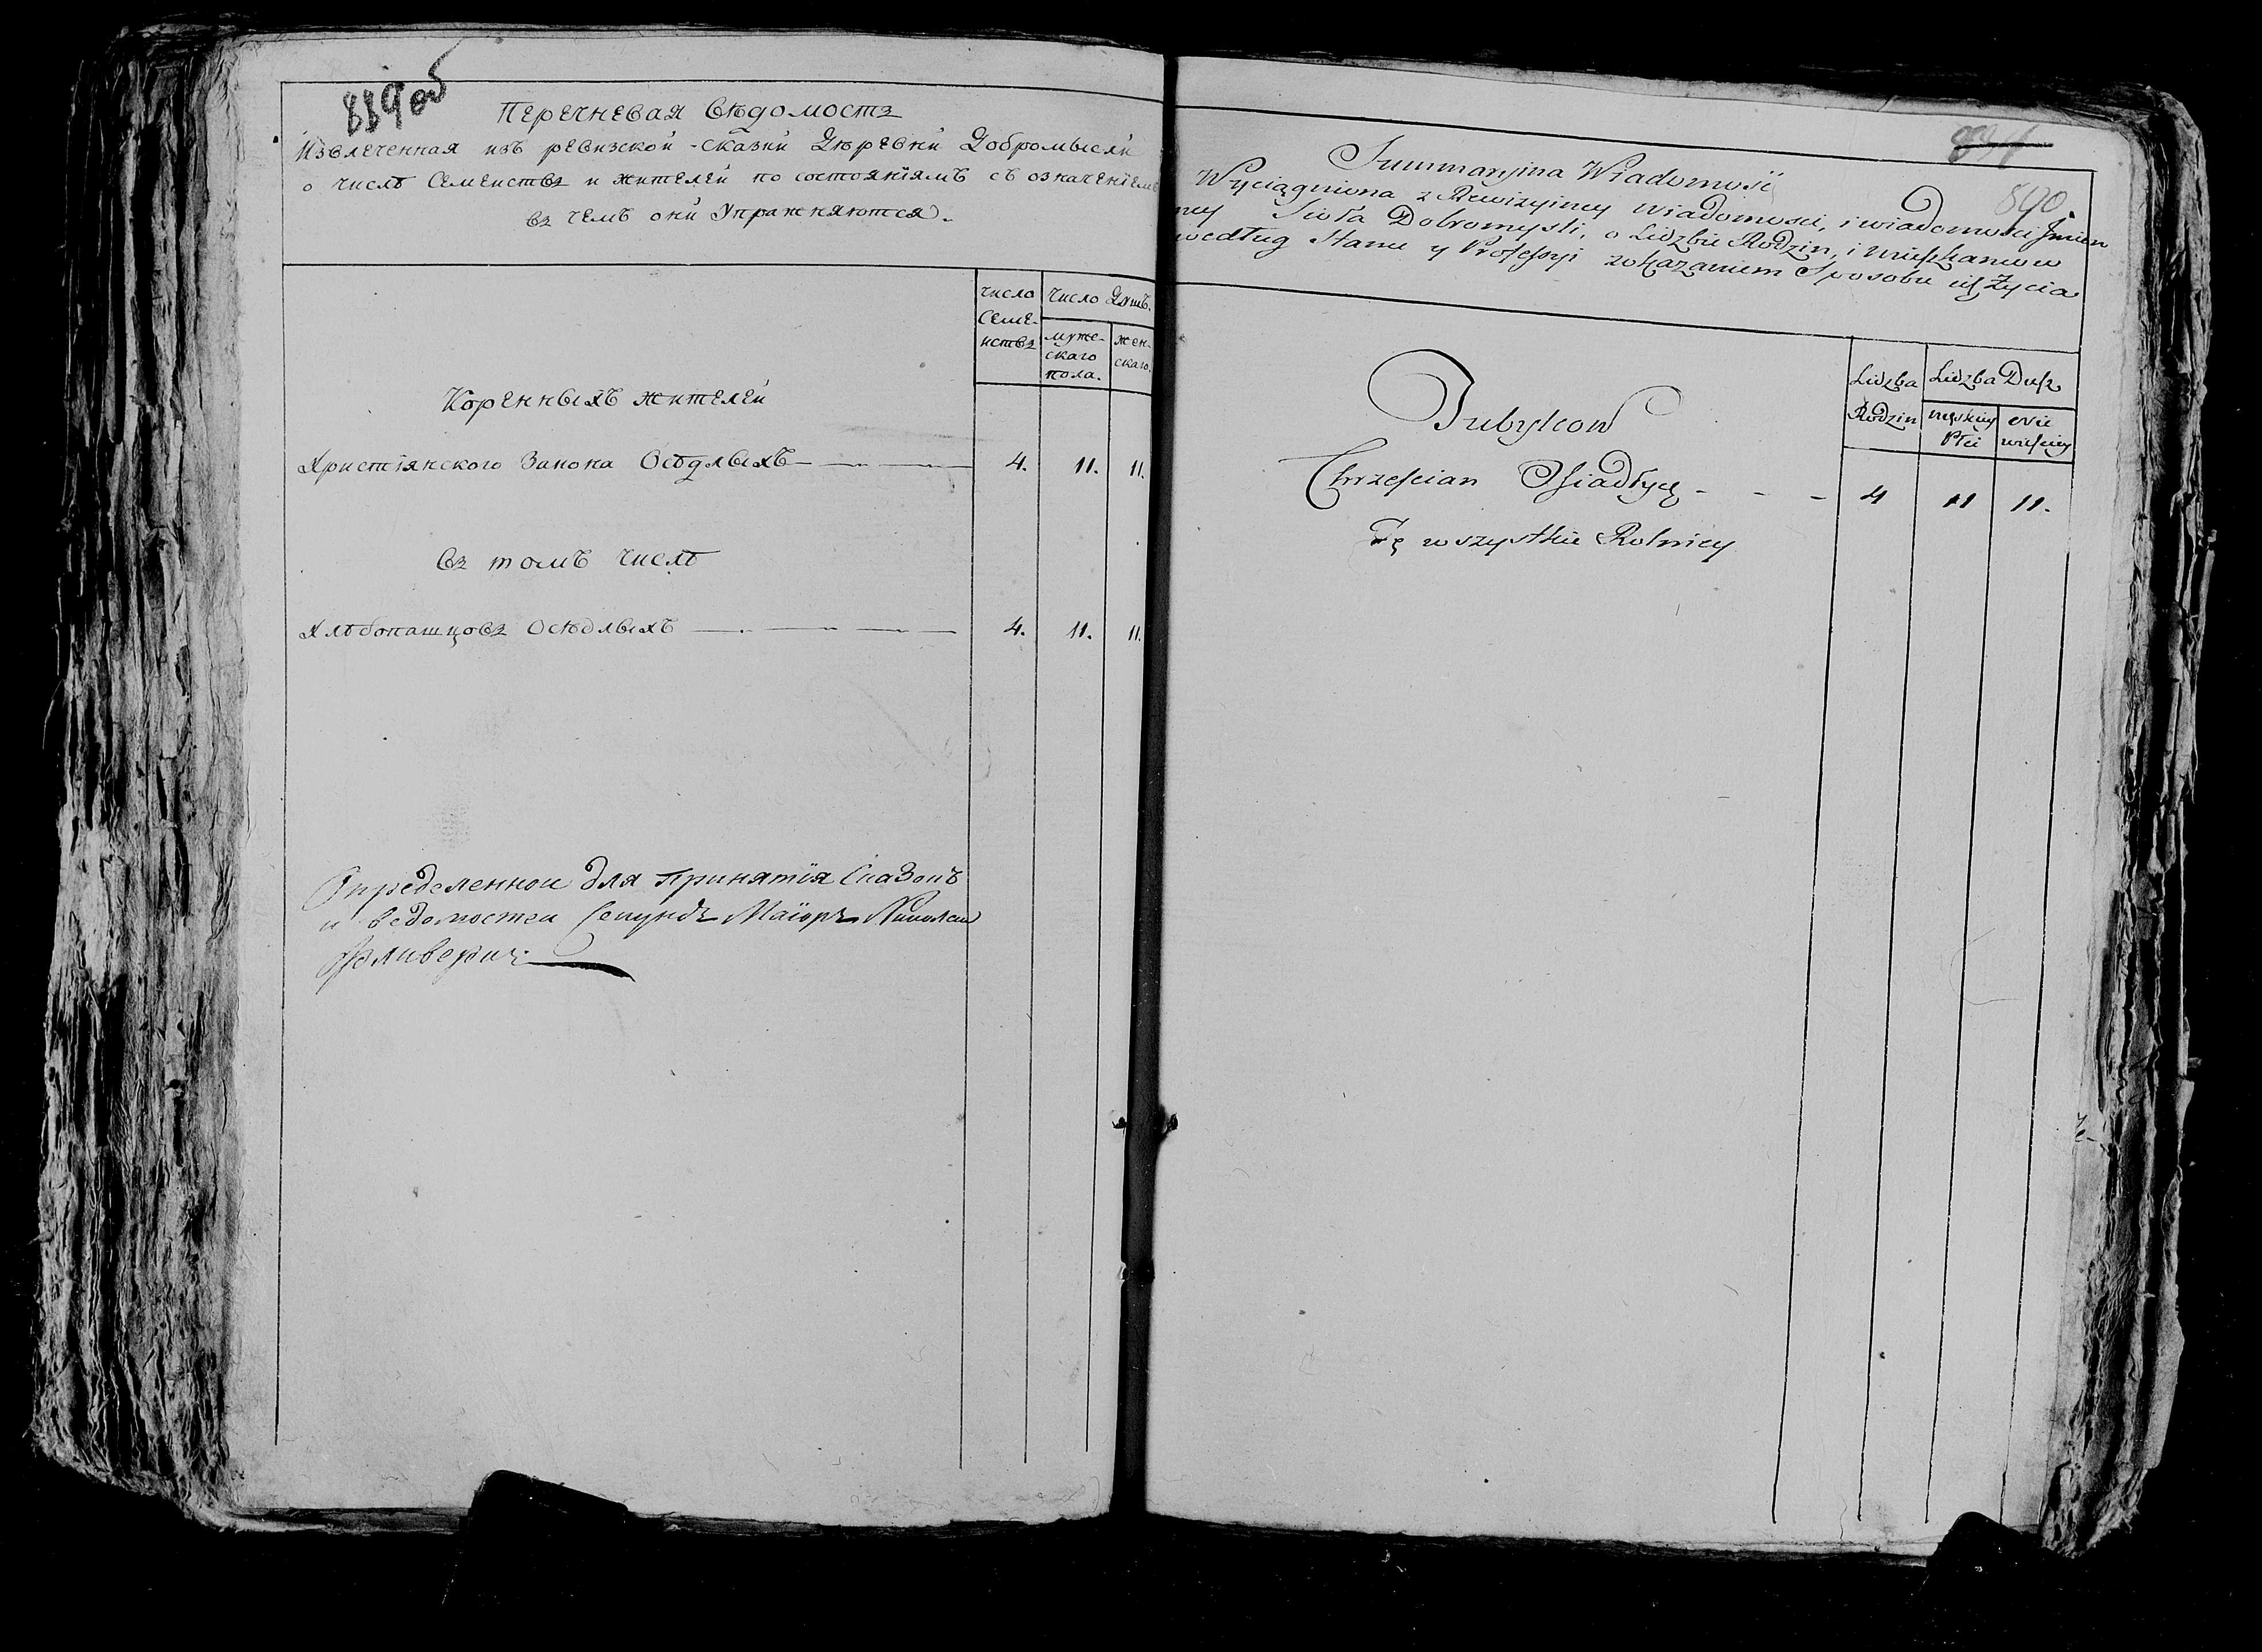 889 об
Перечневая Вѣдомость
Извлеченная изъ ревизской сказки Деревни Добромысли
о числѣ Семействъ и жителей по состояніямъ съ означеніемъ
въ чемъ они Упражняются.
число Семе-йствъ
число Душъ.
муже-скаго пола.
жен-скаго.
Коренныхъ жителей
Християнского Закона Осѣдлыхъ 4. 11. 11.
въ томъ числѣ
Хлѣбопашцовъ Осѣдлыхъ 4. 11. 11.
Определенной для принятія Сказокъ
и ведомостей Секундъ Маіоръ Николай
890.
Summaryina Wiadomość
Wyciągniona z Rewizyiney wiadomosci, i wiadomosci Jmien
ney Sioła Dobromysli, o Lidzbie Rodzin, i mieszkancow
według Stanu y Professyi zokazaniem Sposobu ich Życia
Lidzba Rodzin
Lidzba Dusz
męskiey Płci
niewieściey
Tubylcow
Chrzescian Osiadłych - - - 4 11 11.
Tę wszystkie Rolnicy